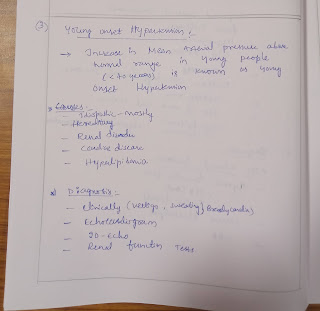 (7) Young onset Hypertension :-
→ Increase in Mean arterial pressure above
normal range in young people
(<40 years) is known as young
onset Hypertension
Causes :-
- Idiopathic - mostly
- Hereditary
- Renal disorder
- Cardiac disease
- Hyperlipidemia
Diagnosis :-
- Clinically (vertigo, sweating,
- Echocardiogram
- 2D-echo
- Renal function Tests